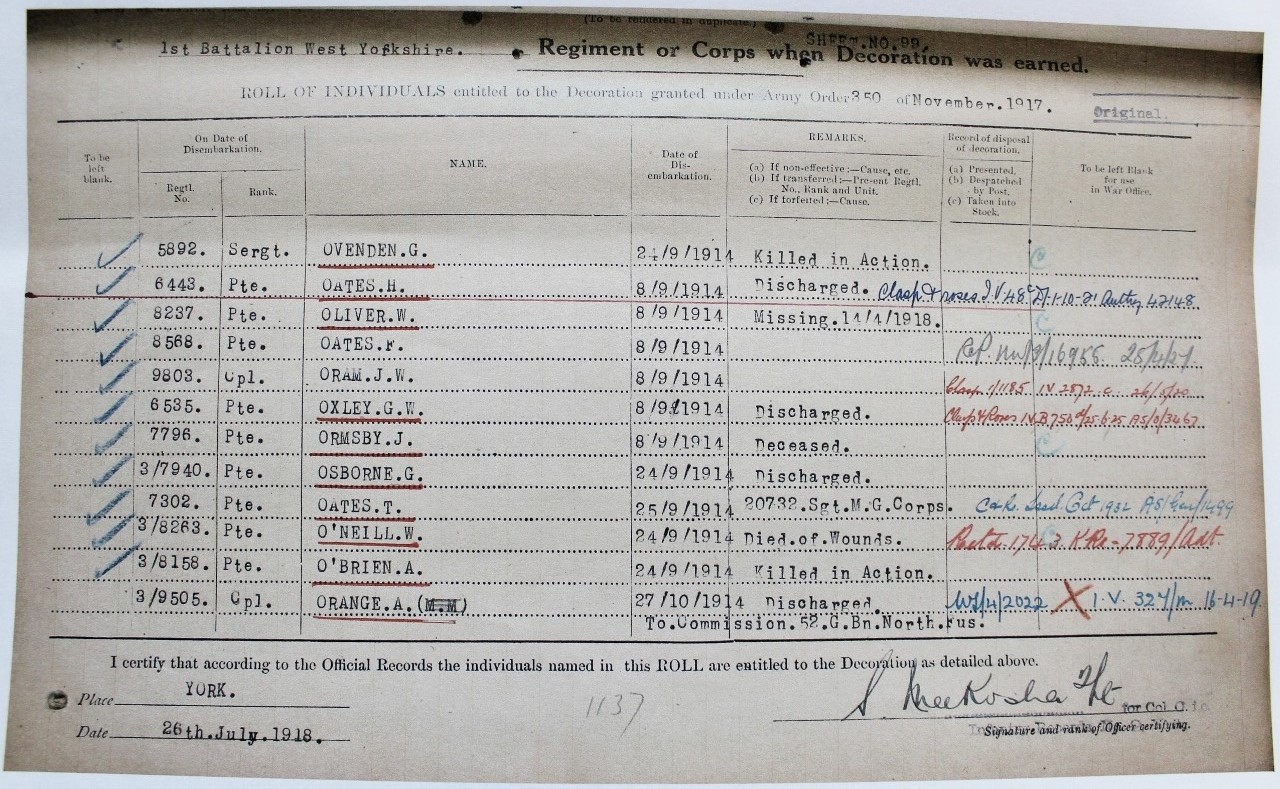 (To be rendered in duplicate.)
SHEET.NO.99.
1st Battalion West Yorkshire. Regiment or Corps when Decoration was earned.
ROLL OF INDIVIDUALS entitled to the Decoration granted under Army Order 350 of November.1917.
Original.
To be left blank.
On Date of Disembarkation.
Regtl. No.
Rank.
NAME.
Date of Dis-embarkation.
REMARKS.
(a) If non-effective:—Cause, etc.
(b) If transferred:—Present Regtl. No., Rank and Unit.
(c) If forfeited:—Cause.
Record of disposal of decoration.
(a) Presented.
(b) Despatched by Post.
(c) Taken into Stock.
To be left Blank for use in War Office.
5892. Sergt. OVENDEN.G. 24/9/1914 Killed in Action. C
6443. Pte. OATES.H. 8/9/1914 Discharged. Clasp & roses I.V. 48 1-10-21 42148
8237. Pte. OLIVER.W. 8/9/1914 Missing.14/4/1918. C
8568. Pte. OATES.F. 8/9/1914 Ref. 16956
9803. Cpl. ORAM.J.W. 8/9/1914 Clasp 1/1185 IV 2872 c 26/5/20
6535. Pte. OXLEY.G.W. 8/9/1914 Discharged. Clasp & Roses IV.B 750 25.6.25 AS/0/3467
7796. Pte. ORMSBY.J. 8/9/1914 Deceased. C
3/7940. Pte. OSBORNE.G. 24/9/1914 Discharged.
7302. Pte. OATES.T. 25/9/1914 20732.Sgt.M.G.Corps. Oct 1932
3/8263. Pte. O'NEILL.W. 24/9/1914 Died.of.Wounds. C 7889/Adt.
3/8158. Pte. O'BRIEN.A. 24/9/1914 Killed in Action.
3/9505. Cpl. ORANGE.A.(M.M) 27/10/1914 Discharged. 4/2022 X I.V. 327/m 16-4-19
To.Commission.52.G.Bn.North.Fus.
I certify that according to the Official Records the individuals named in this ROLL are entitled to the Decoration as detailed above.
Place YORK.
1137
S MeeKosha
for Col.
Date 26th.July.1918.
Signature and rank of Officer certifying.